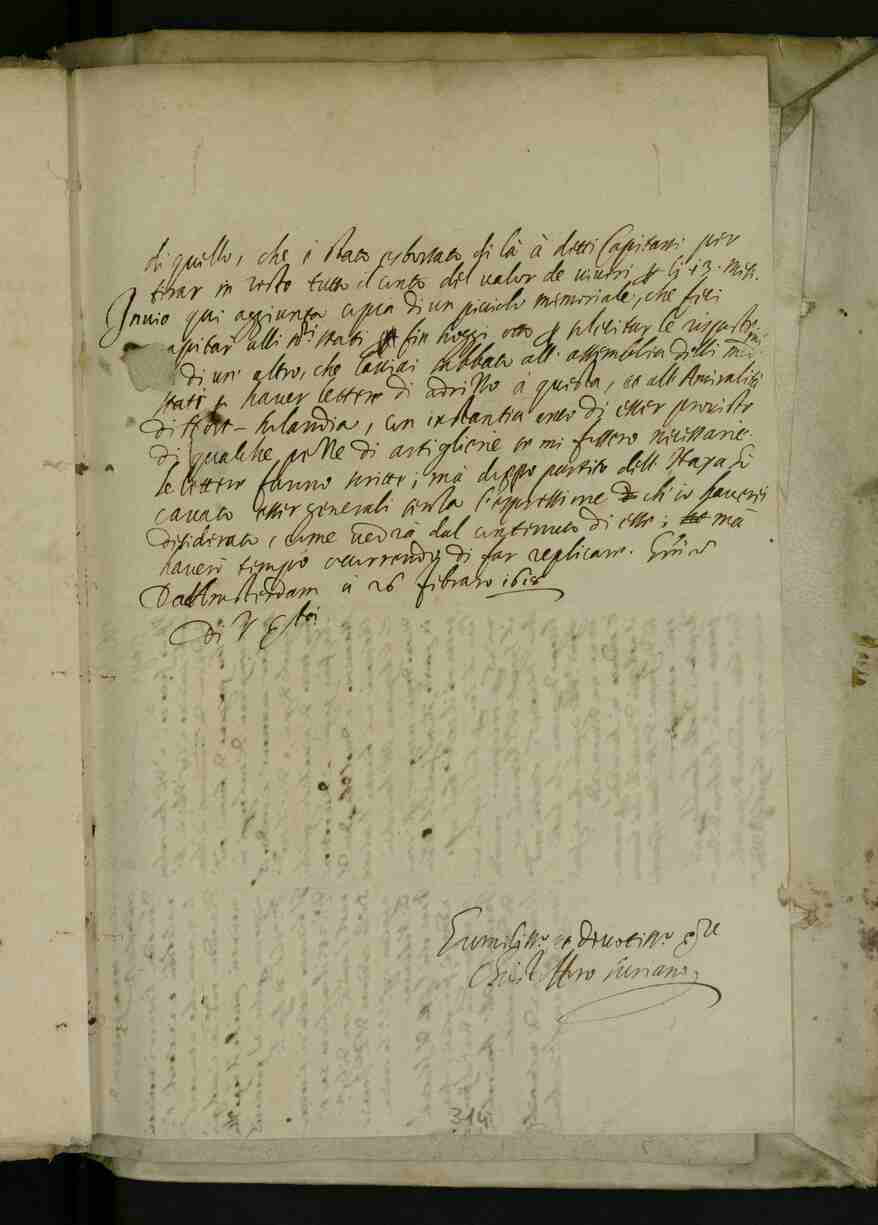 di quello, che è stato esborsato di là à detti Capitani per
tirar in resto tutto il conto del valor de viveri li 13. mesi.
Invio qui aggiunta copia di un picciolo memoriale, che feci
capitar alli Sri stati fin hoggi otto sollicitar le risposte,
di un' altro, che lasciai sabbato all' assemblea delli medmi
stati haver lettere di adrizzo à questa, et all' Amiralità
di Nort-Holandia, con instantia anco di esser provisto
di qualche pezze di artigliarie se mi fossero necessarie.
le lettere furono scritte; mà doppo partito dall' Haya hò
cavato esser generali senza l'espressione di ch' io haverei
desiderato, come vedrà dal contenuto di esse; mà
haverò tempo occorrendo di far replicare. Gratie
Dall' Amsterdam à 26 febraro 1618
Di V Ecc.
Humiliss.o et Devotiss.o sre
Christofforo Suriano
314